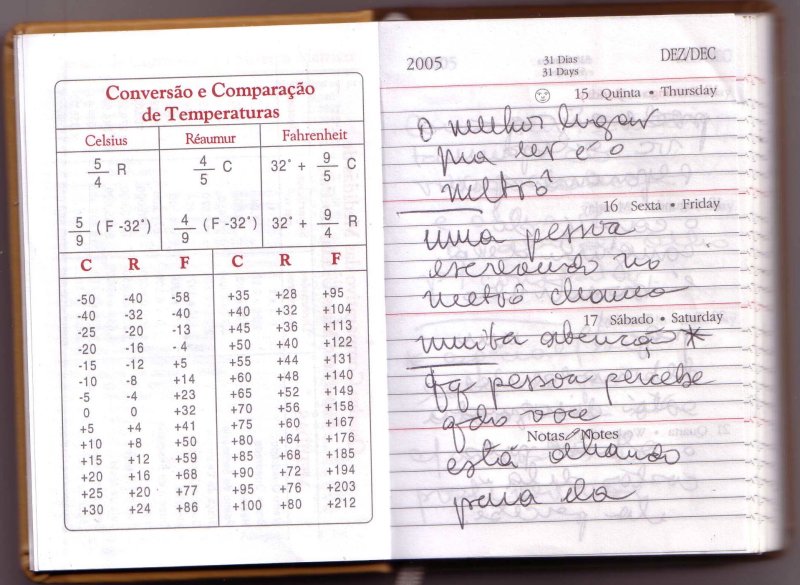 Conversão e Comparação
de Temperaturas
Celsius Réaumur Fahrenheit
5/4 R 4/5 C 32° + 9/5 C
5/9 (F -32°) 4/9 (F -32°) 32° + 9/4 R
C R F C R F
-50 -40 -58 +35 +28 +95
-40 -32 -40 +40 +32 +104
-25 -20 -13 +45 +36 +113
-20 -16 -4 +50 +40 +122
-15 -12 +5 +55 +44 +131
-10 -8 +14 +60 +48 +140
-5 -4 +23 +65 +52 +149
0 0 +32 +70 +56 +158
+5 +4 +41 +75 +60 +167
+10 +8 +50 +80 +64 +176
+15 +12 +59 +85 +68 +185
+20 +16 +68 +90 +72 +194
+25 +20 +77 +95 +76 +203
+30 +24 +86 +100 +80 +212
2005 31 Dias DEZ/DEC
31 Days
15 Quinta • Thursday
O melhor lugar
pra ler é o
metrô
16 Sexta • Friday
uma pessoa
escrevendo no
metrô chama
17 Sábado • Saturday
muita atenção *
qq pessoa percebe
qdo você
Notas / Notes
está olhando
para ela